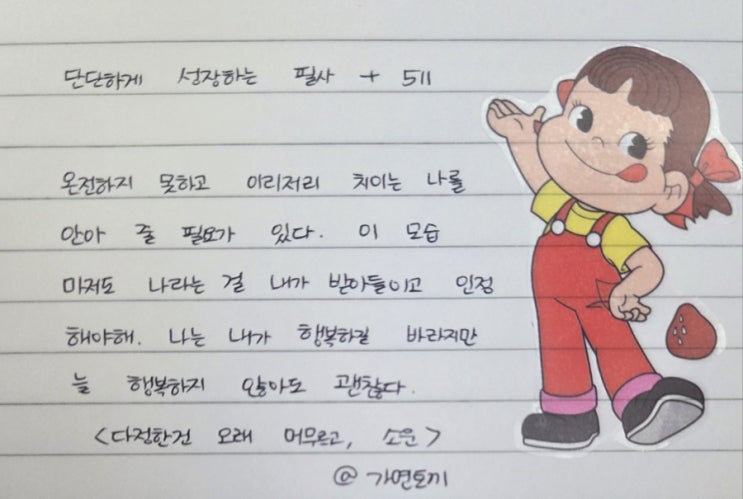 단단하게 성장하는 필사 + 511
온전하지 못하고 이리저리 치이는 나를
안아 줄 필요가 있다. 이 모습
마저도 나라는 걸 내가 받아들이고 인정
해야해. 나는 내가 행복하길 바라지만
늘 행복하지 않아도 괜찮다.
<다정한건 오래 머무르고, 소운>
@ 가연토끼